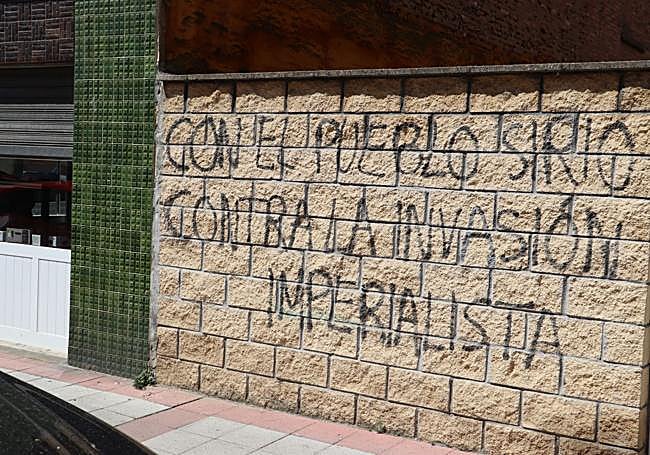 CON EL PUEBLO SIRIO
CONTRA LA INVASIÓN
IMPERIALISTA